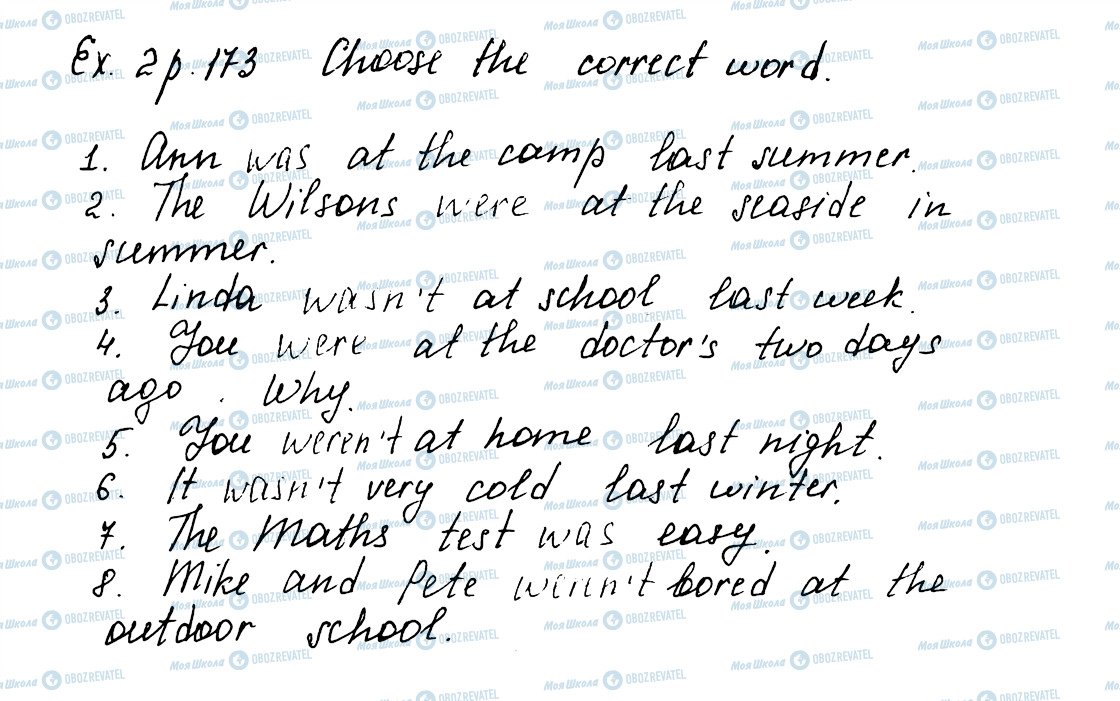 Ex. 2 p. 173 Choose the correct word.
1. Ann was at the camp last summer.
2. The Wilsons were at the seaside in
summer.
3. Linda wasn't at school last week.
4. You were at the doctor's two days
ago. Why.
5. You weren't at home last night.
6. It wasn't very cold last winter.
7. The Maths test was easy.
8. Mike and Pete weren't bored at the
outdoor school.
МояШкола OBOZREVATEL